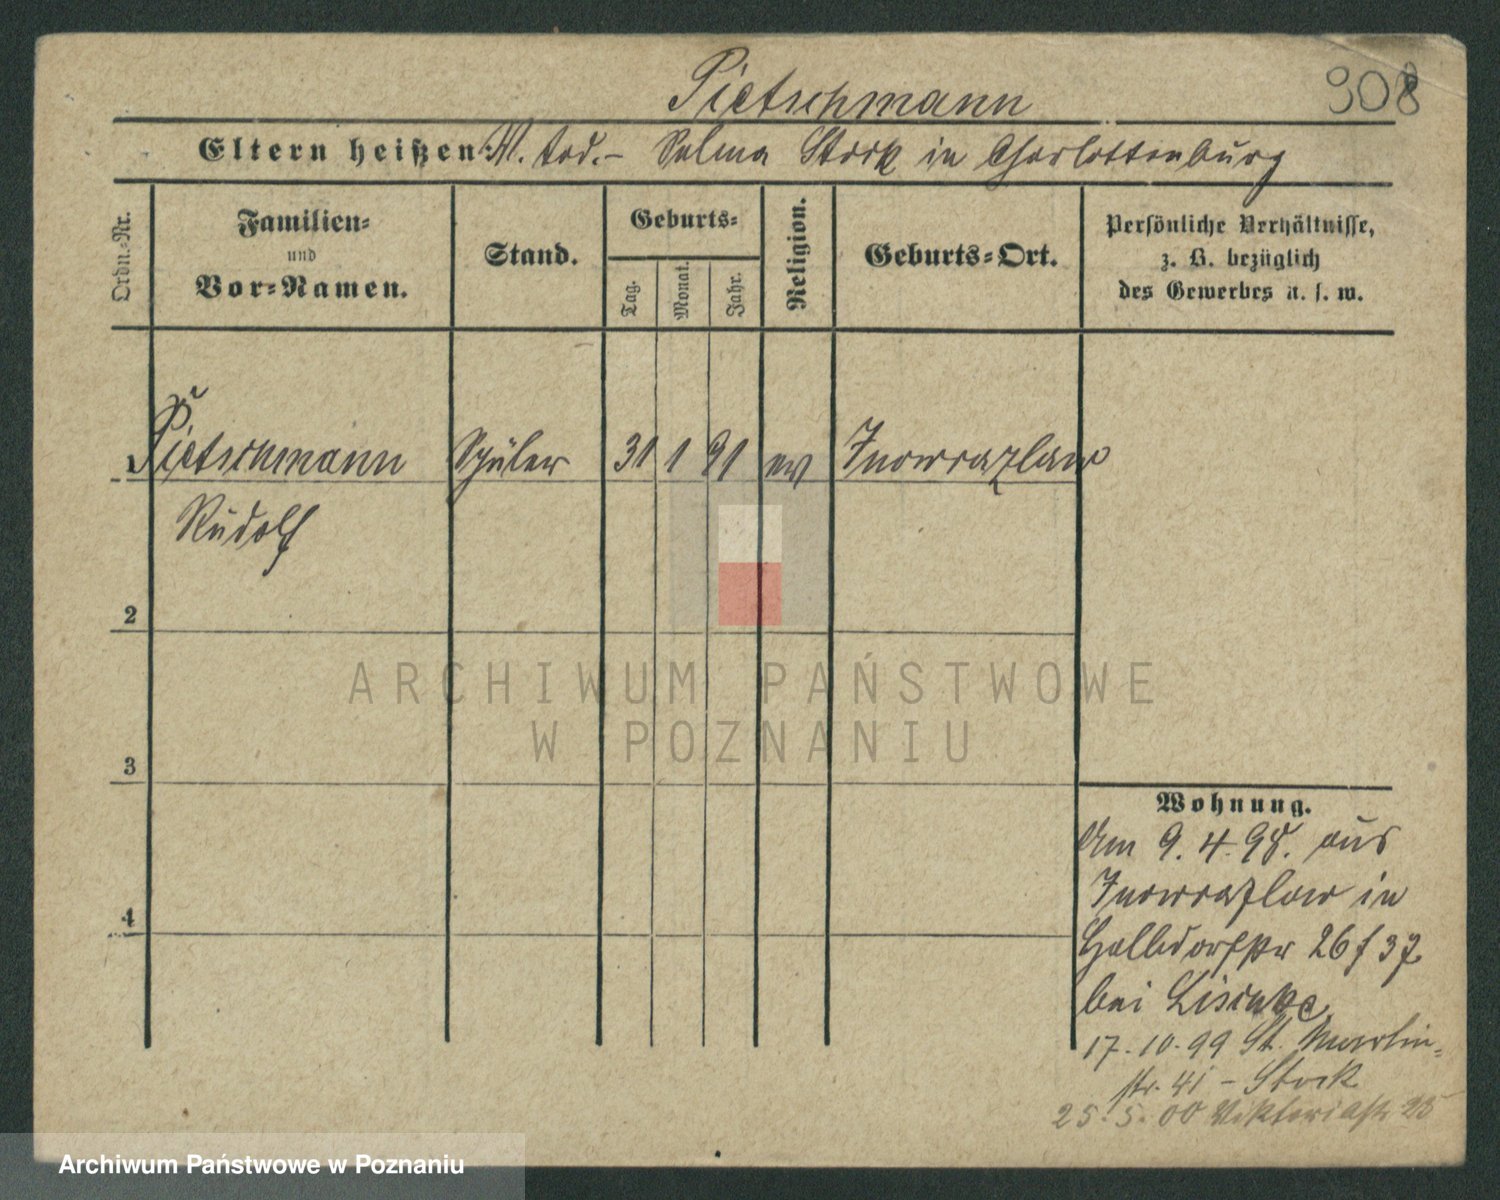 Pietschmann
308
Eltern heißen: V. tod. – Selma Stock in Charlottenburg
Ordn.-Nr.
Familien-
und
Vor-Namen.
Stand.
Geburts-
Tag.
Monat.
Jahr.
Religion.
Geburts-Ort.
Persönliche Verhältnisse,
z. B. bezüglich
des Gewerbes u. s. w.
1 Pietschmann Schüler 31 1 91 ev Inowrazlaw
Rudolf
2
3
4
Wohnung.
Am 9. 4. 98. aus
Inowrazlaw in
26
bei
17. 10. 99 St. Martin-
str. 41 – Stock
25. 5. 00 Viktoriastr 25
ARCHIWUM PAŃSTWOWE
W POZNANIU
Archiwum Państwowe w Poznaniu